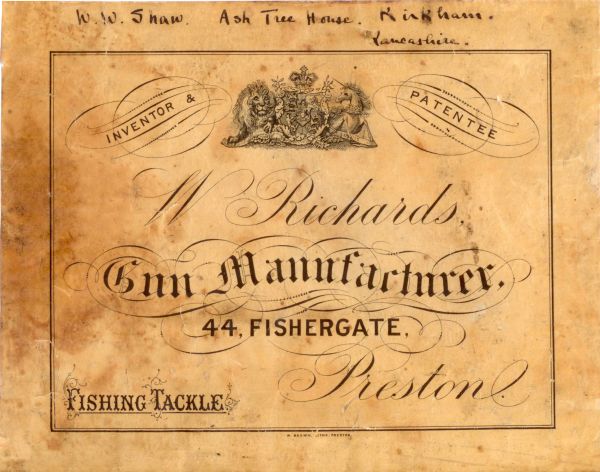 W. W. Shaw. Ash Tree House. Kirkham.
Lancashire.
INVENTOR & PATENTEE
W Richards,
Gun Manufacturer,
44, FISHERGATE,
Preston.
FISHING TACKLE.